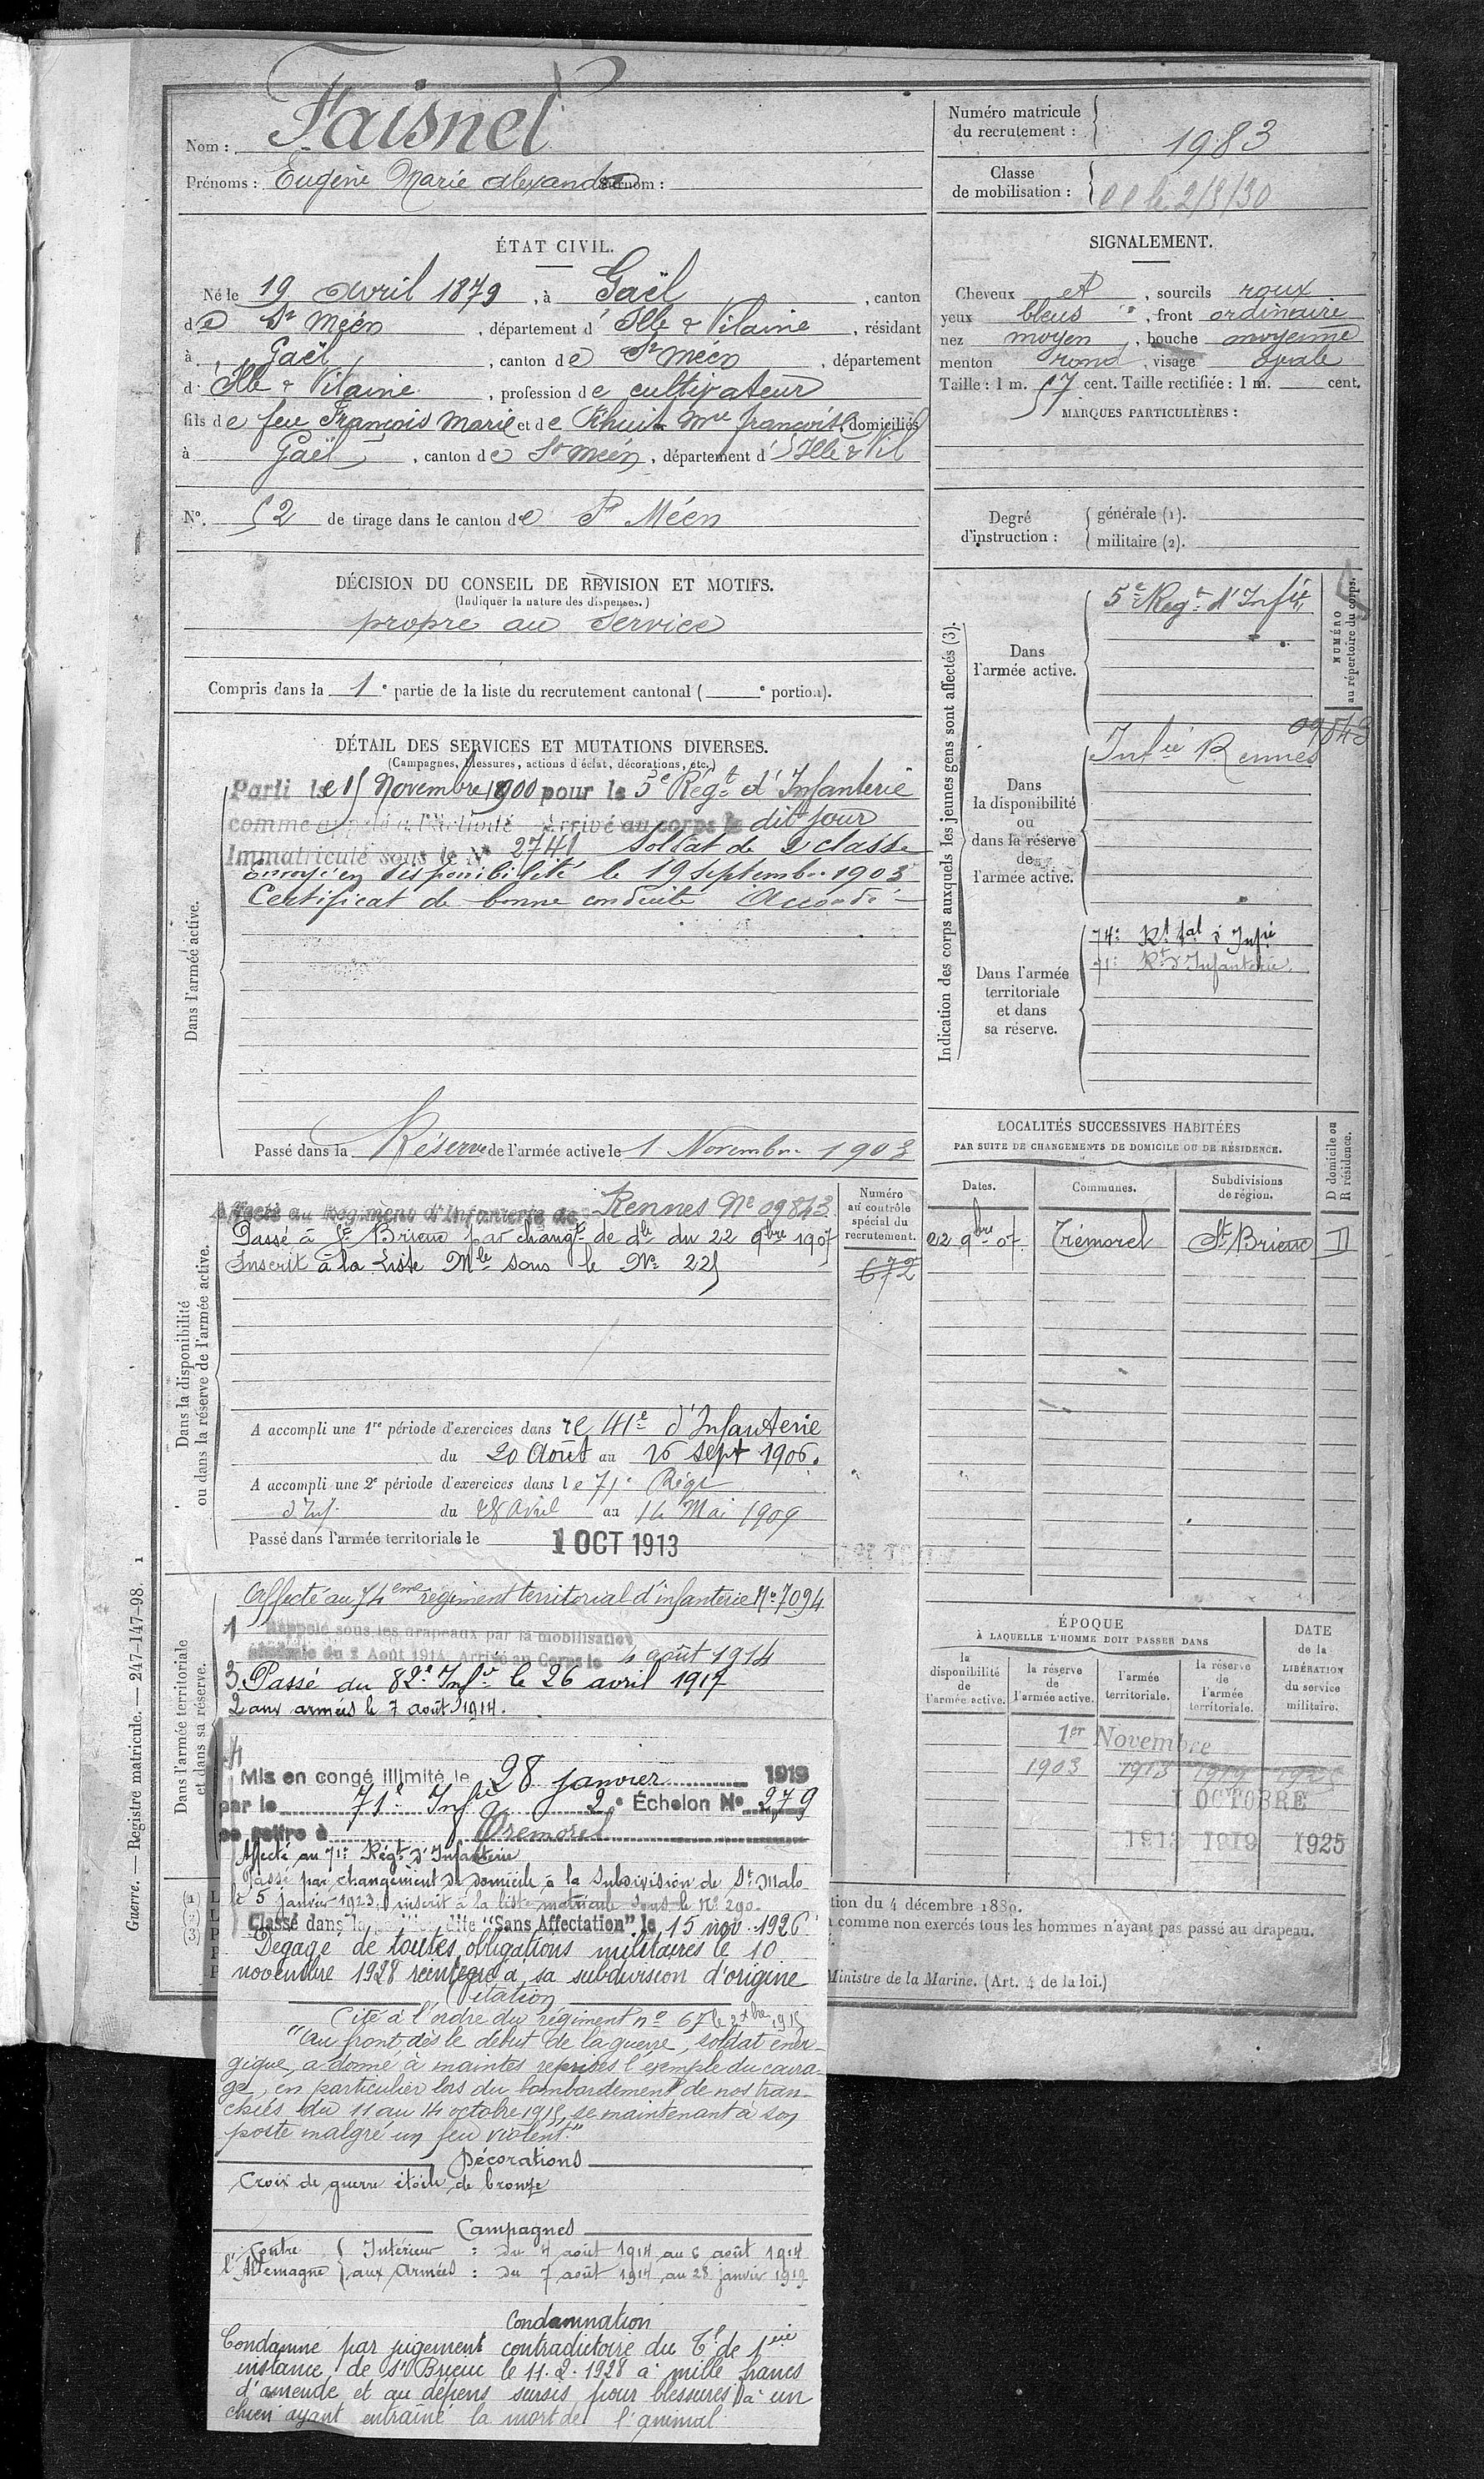 Nom : Faisnel
Prénoms : Eugène Marie Alexandre Surnom :
Numéro matricule du recrutement : 1983
Classe de mobilisation : l l le 2/8/30
ÉTAT CIVIL.
Né le 19 avril 1879, à Gaël, canton
de St Méen, département d'Ille & Vilaine, résidant
à Gaël, canton de St Méen, département
d'Ille & Vilaine, profession de cultivateur
fils de feu François Marie et de françoise domiciliés
à Gaël, canton de St Méen, département d'Ille & Vil
No. 52 de tirage dans le canton de St Méen
SIGNALEMENT.
Cheveux et, sourcils roux
yeux bleus, front ordinaire
nez moyen, bouche moyenne
menton rond, visage ovale
Taille : 1 m. 57 cent. Taille rectifiée : 1 m. cent.
MARQUES PARTICULIÈRES :
Degré d'instruction : générale (1).
militaire (2).
DÉCISION DU CONSEIL DE RÉVISION ET MOTIFS.
(Indiquer la nature des dispenses.)
propre au service
Compris dans la 1e partie de la liste du recrutement cantonal ( e portion).
DÉTAIL DES SERVICES ET MUTATIONS DIVERSES.
(Campagnes, blessures, actions d'éclat, décorations, etc.)
Dans l'armée active.
Parti le 15 Novembre 1900 pour le 5e Régt d'Infanterie
comme appelé à l'activité Arrivé au corps le dit jour
Immatriculé sous le No 2741 Soldat de 2 classe
envoyé en disponibilité le 19 septembre 1903
Certificat de bonne conduite Accordé
Passé dans la Réserve de l'armée active le 1 Novembre 1903
Indication des corps auxquels les jeunes gens sont affectés (3).
NUMÉRO au répertoire du corps.
Dans l'armée active.
5e Régt d'Infie
Dans la disponibilité ou dans la réserve de l'armée active.
Infie Rennes 09843
Dans l'armée territoriale et dans sa réserve.
74e Rt tal d'Infie
71e Rt d'Infanterie
LOCALITÉS SUCCESSIVES HABITÉES
PAR SUITE DE CHANGEMENTS DE DOMICILE OU DE RÉSIDENCE.
D domicile ou R résidence.
Dates. Communes. Subdivisions de région.
22 9bre 07. Trémorel St Brieuc D
Dans la disponibilité ou dans la réserve de l'armée active.
Numéro au contrôle spécial du recrutement.
672
Affecté au Régiment d'Infanterie de Rennes No 09843
Passé à St Brieuc par changt de dle du 22 9bre 1907
Inscrit à la Liste Mle sous le No 225
A accompli une 1re période d'exercices dans le 41e d'Infanterie
du 20 Août au 16 sept 1906.
A accompli une 2e période d'exercices dans le 71e Régt
d'Inf. du 28 Avril au 14 Mai 1909
Passé dans l'armée territoriale le 1 OCT 1913
Guerre. — Registre matricule. — 247-147-98. 1
Dans l'armée territoriale et dans sa réserve.
Affecté au 74eme régiment territorial d'infanterie No 7094
1 Rappelé sous les drapeaux par la mobilisation
générale du 2 Août 1914. Arrivé au Corps le 4 août 1914
3. Passé au 82e Infie le 26 avril 1917
2 aux armées le 7 août 1914.
4
Mis en congé illimité le 28 janvier 1919
par le 71e Infie 2e Échelon No 279
se retire à Trémorel
Affecté au 71e Régt d'Infanterie
Passé par changement de domicile à la subdivision de St Malo
le 5 janvier 1923, inscrit à la liste matricule sous le No 290.
Classé dans la position dite "Sans Affectation" le 15 nov. 1926
Dégagé de toutes obligations militaires le 10
novembre 1928 réintégré à sa subdivision d'origine
Citation
Cité à l'ordre du régiment no 67 le 2 xbre 1915
"Au front dès le début de la guerre, soldat éner-
gique, a donné à maintes reprises l'exemple du coura-
ge, en particulier lors du bombardement de nos tran-
chées du 11 au 14 octobre 1915, se maintenant à son
poste malgré un feu violent."
Décorations
Croix de guerre étoile de bronze
Campagnes
Contre l'Allemagne
Intérieur : du 4 août 1914 au 6 août 1914
aux Armées : du 7 août 1914 au 28 janvier 1919
Condamnation
Condamné par jugement contradictoire du Tl de 1ère
instance de St Brieuc le 11.2.1928 à mille francs
d'amende et au dépens sursis pour blessures à un
chien ayant entraîné la mort de l'animal
ÉPOQUE
À LAQUELLE L'HOMME DOIT PASSER DANS
la disponibilité de l'armée active.
la réserve de l'armée active.
l'armée territoriale.
la réserve de l'armée territoriale.
DATE de la LIBÉRATION du service militaire.
1er Novembre
1903 1913 1919
1 OCTOBRE
1913 1919 1925
(1)
(2)
(3)
tion du 4 décembre 1889.
comme non exercés tous les hommes n'ayant pas passé au drapeau.
Ministre de la Marine. (Art. 4 de la loi.)